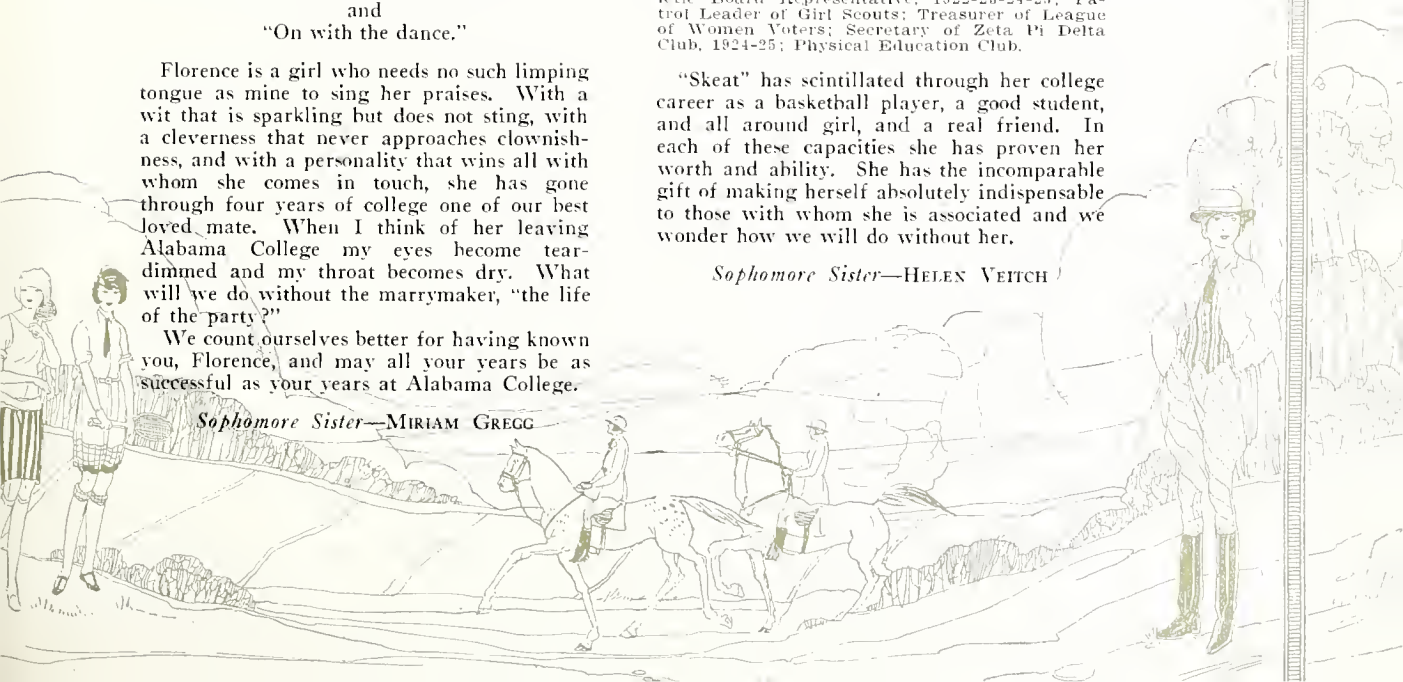 and
“On with the dance.”
Florence is a girl who needs no such limping
tongue as mine to sing her praises. With a
wit that is sparkling but does not sting, with
a cleverness that never approaches clownish-
ness, and with a personality that wins all with
whom she comes in touch, she has gone
through four years of college one of our best
loved mate. When I think of her leaving
Alabama College my eyes become tear-
dimmed and my throat becomes dry. What
will we do without the marrymaker, “the life
of the party?”
We count ourselves better for having known
you, Florence, and may all your years be as
successful as your years at Alabama College.
Sophomore Sister—MIRIAM GREGG
trol Leader of Girl Scouts; Treasurer of League
of Women Voters; Secretary of Zeta Pi Delta
Club, 1924-25; Physical Education Club.
“Skeat” has scintillated through her college
career as a basketball player, a good student,
and all around girl, and a real friend. In
each of these capacities she has proven her
worth and ability. She has the incomparable
gift of making herself absolutely indispensable
to those with whom she is associated and we
wonder how we will do without her.
Sophomore Sister—HELEN VEITCH